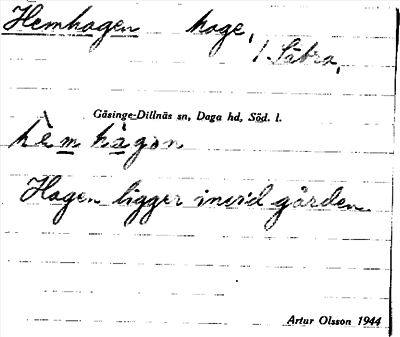 Hemhagen hage,
/ Säbra,
Gåsinge-Dillnäs sn, Daga hd, Söd. l.
hè m hàgon
Hagen ligger invid gården
Artur Olsson 1944